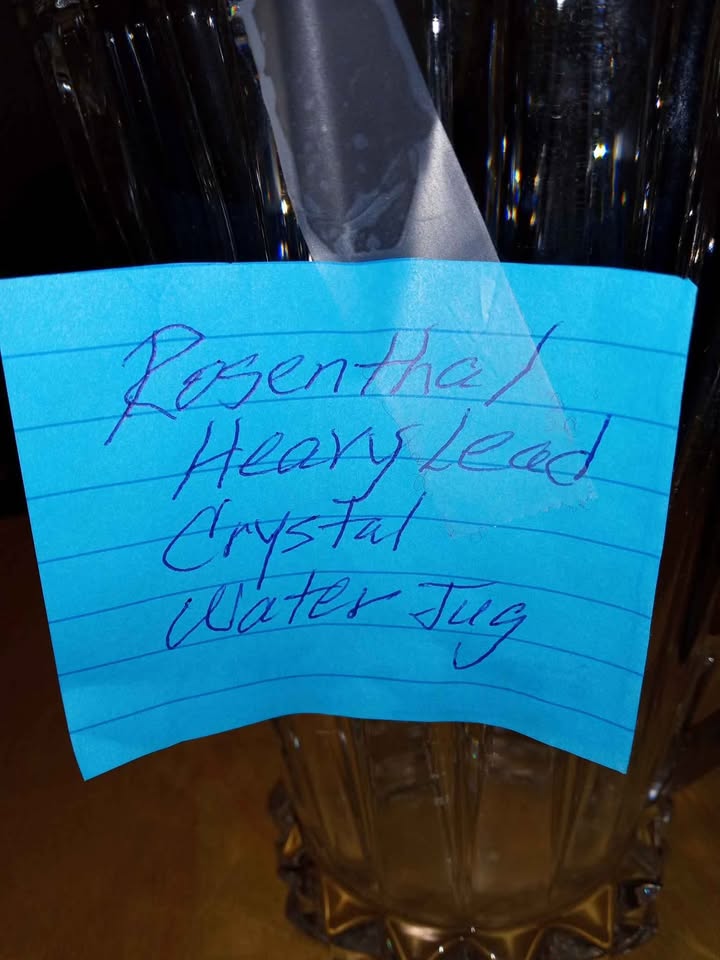 Rosenthal
Heavy Lead
Crystal
Water Jug